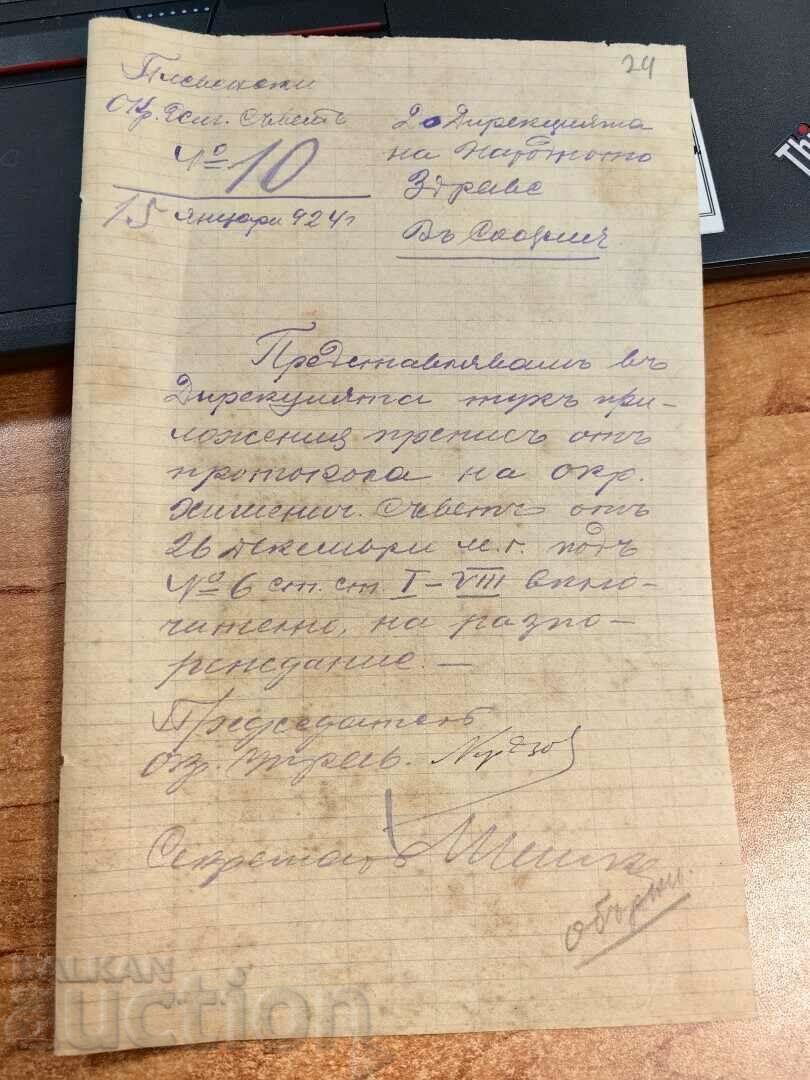 24
Плевенски
Окр. Хиг. Съветъ
№ 10
15 януари 924 г
До Дирекцията
на Народното
Здраве
Въ София
Представлявамъ въ
Дирекцията тукъ при-
ложения преписъ отъ
протокола на окр.
Хигиенич. Съветъ отъ
26 декемврий м.г. подъ
№ 6 ст. ст. I – VIII вклю-
чително, на разпо-
реждание. —
Председатель
окр.
Секретарь
обърни.
BALKAN
auction
Thi